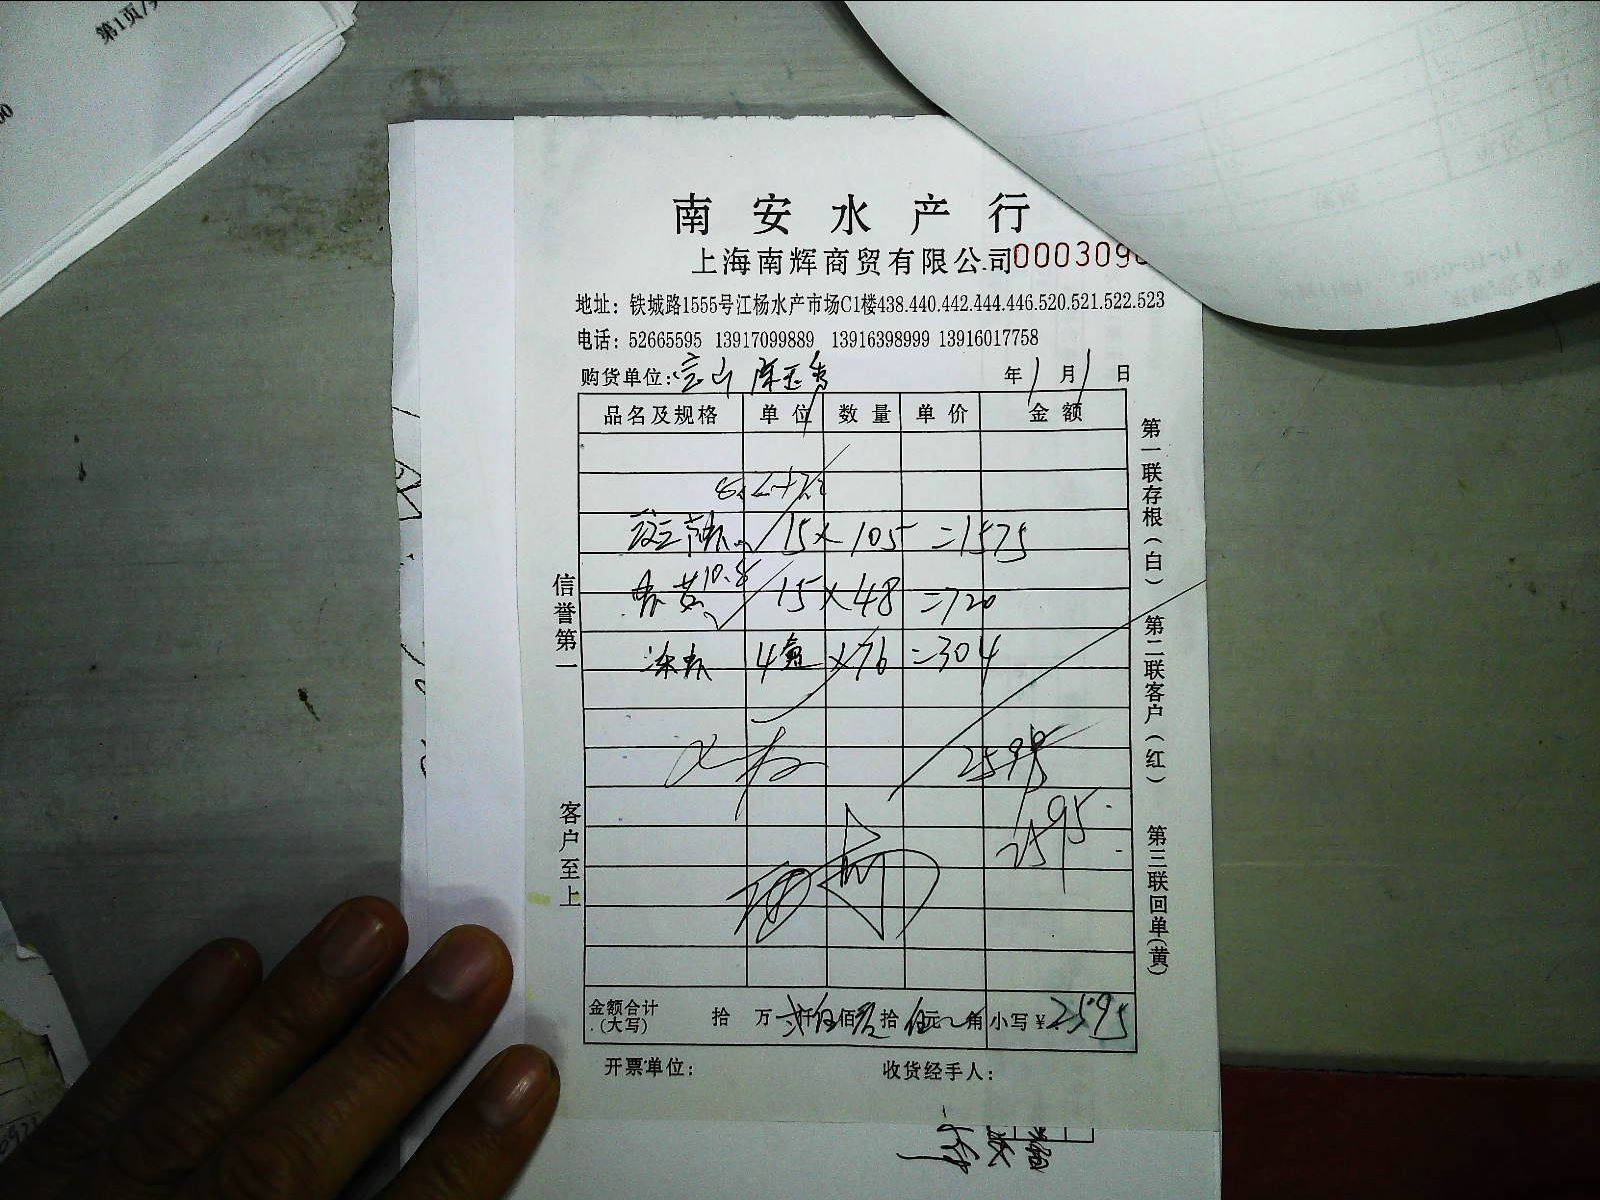 第1页
南安水产行
上海南辉商贸有限公司 000309
地址：铁城路1555号江杨水产市场C1楼438.440.442.444.446.520.521.522.523
电话：52665595 13917099889 13916398999 13916017758
购货单位：宝山 陈玉 年1月1日
品名及规格 单位 数量 单价 金额
15×105=1575
10.8 15×48=720
冻虾 4盒×76=304
2595
2595
金额合计(大写) 拾 万 贰仟伍佰玖拾伍元 角 小写￥2595
开票单位： 收货经手人：
信誉第一
客户至上
第一联存根(白)
第二联客户(红)
第三联回单(黄)